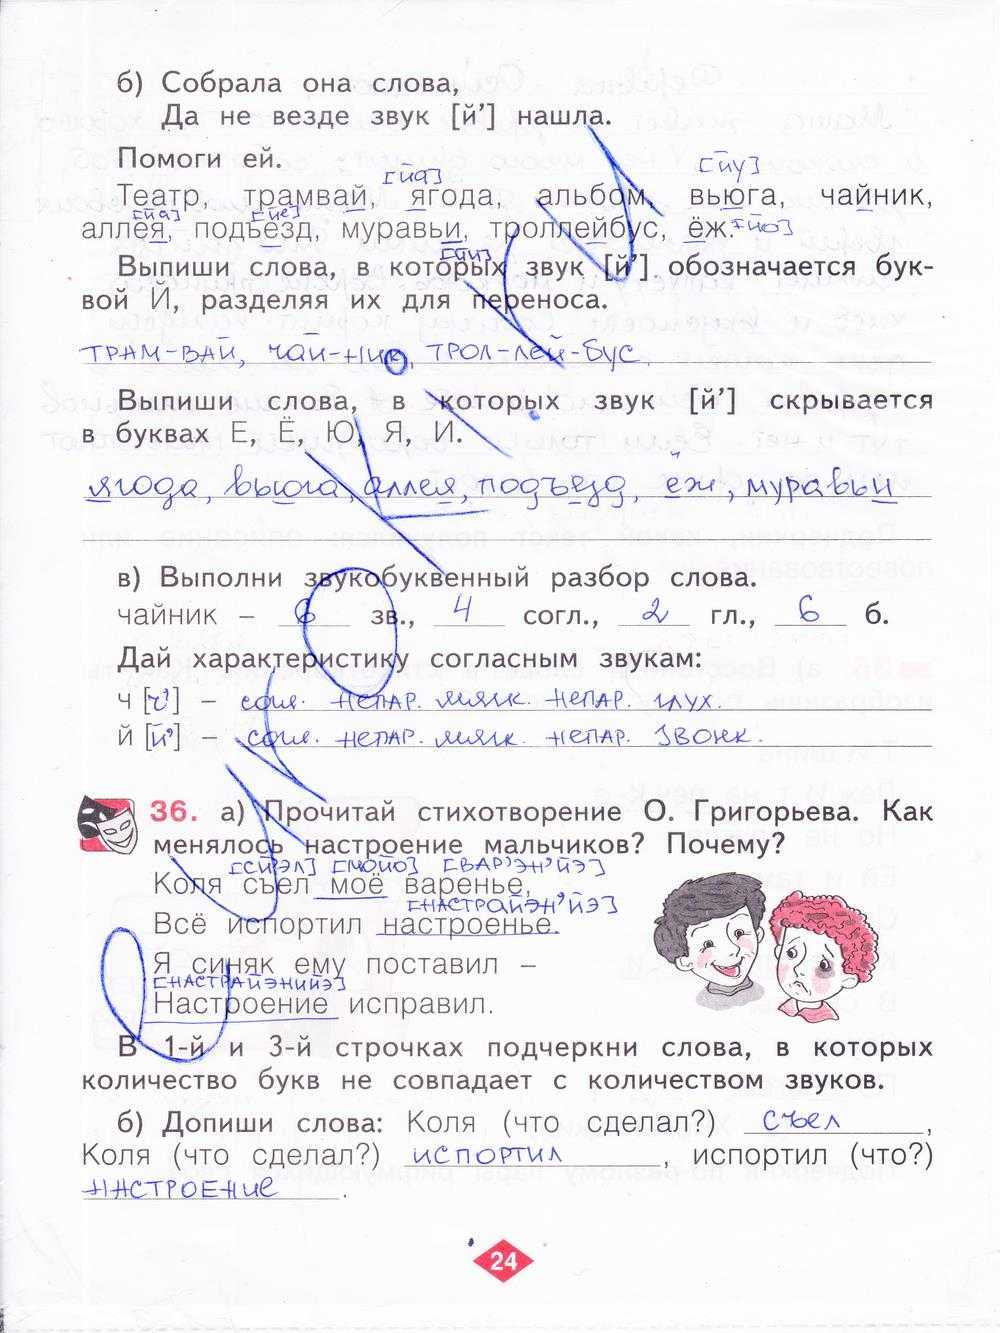 б) Собрала она слова,
Да не везде звук [й’] нашла.
Помоги ей.
[йа] [йу]
Театр, трамвай, ягода, альбом, вьюга, чайник,
[йа] [йе]
аллея, подъезд, муравьи, троллейбус, ёж. [йо]
[йи]
Выпиши слова, в которых звук [й’] обозначается бук-
вой Й, разделяя их для переноса.
ТРАМ-ВАЙ, ЧАЙ-НИК, ТРОЛ-ЛЕЙ-БУС.
Выпиши слова, в которых звук [й’] скрывается
в буквах Е, Ё, Ю, Я, И.
ягода, вьюга, аллея, подъезд, ёж, муравьи
в) Выполни звукобуквенный разбор слова.
чайник – 6 зв., 4 согл., 2 гл., 6 б.
Дай характеристику согласным звукам:
Ч [ч’] – согл. НЕПАР. МЯГК. НЕПАР. ГЛУХ.
й [й’] – согл. НЕПАР. МЯГК. НЕПАР. ЗВОНК.
36. а) Прочитай стихотворение О. Григорьева. Как
менялось настроение мальчиков? Почему?
[СЙ’ЭЛ] [МОЙО] [ВАР’ЭН’ЙЭ]
Коля съел моё варенье,
[НАСТРАЙЭН’ЙЭ]
Всё испортил настроенье.
Я синяк ему поставил –
[НАСТРАЙЭНИЙЭ]
Настроение исправил.
В 1-й и 3-й строчках подчеркни слова, в которых
количество букв не совпадает с количеством звуков.
б) Допиши слова: Коля (что сделал?) СЪЕЛ,
Коля (что сделал?) ИСПОРТИЛ, испортил (что?)
НАСТРОЕНИЕ.
24